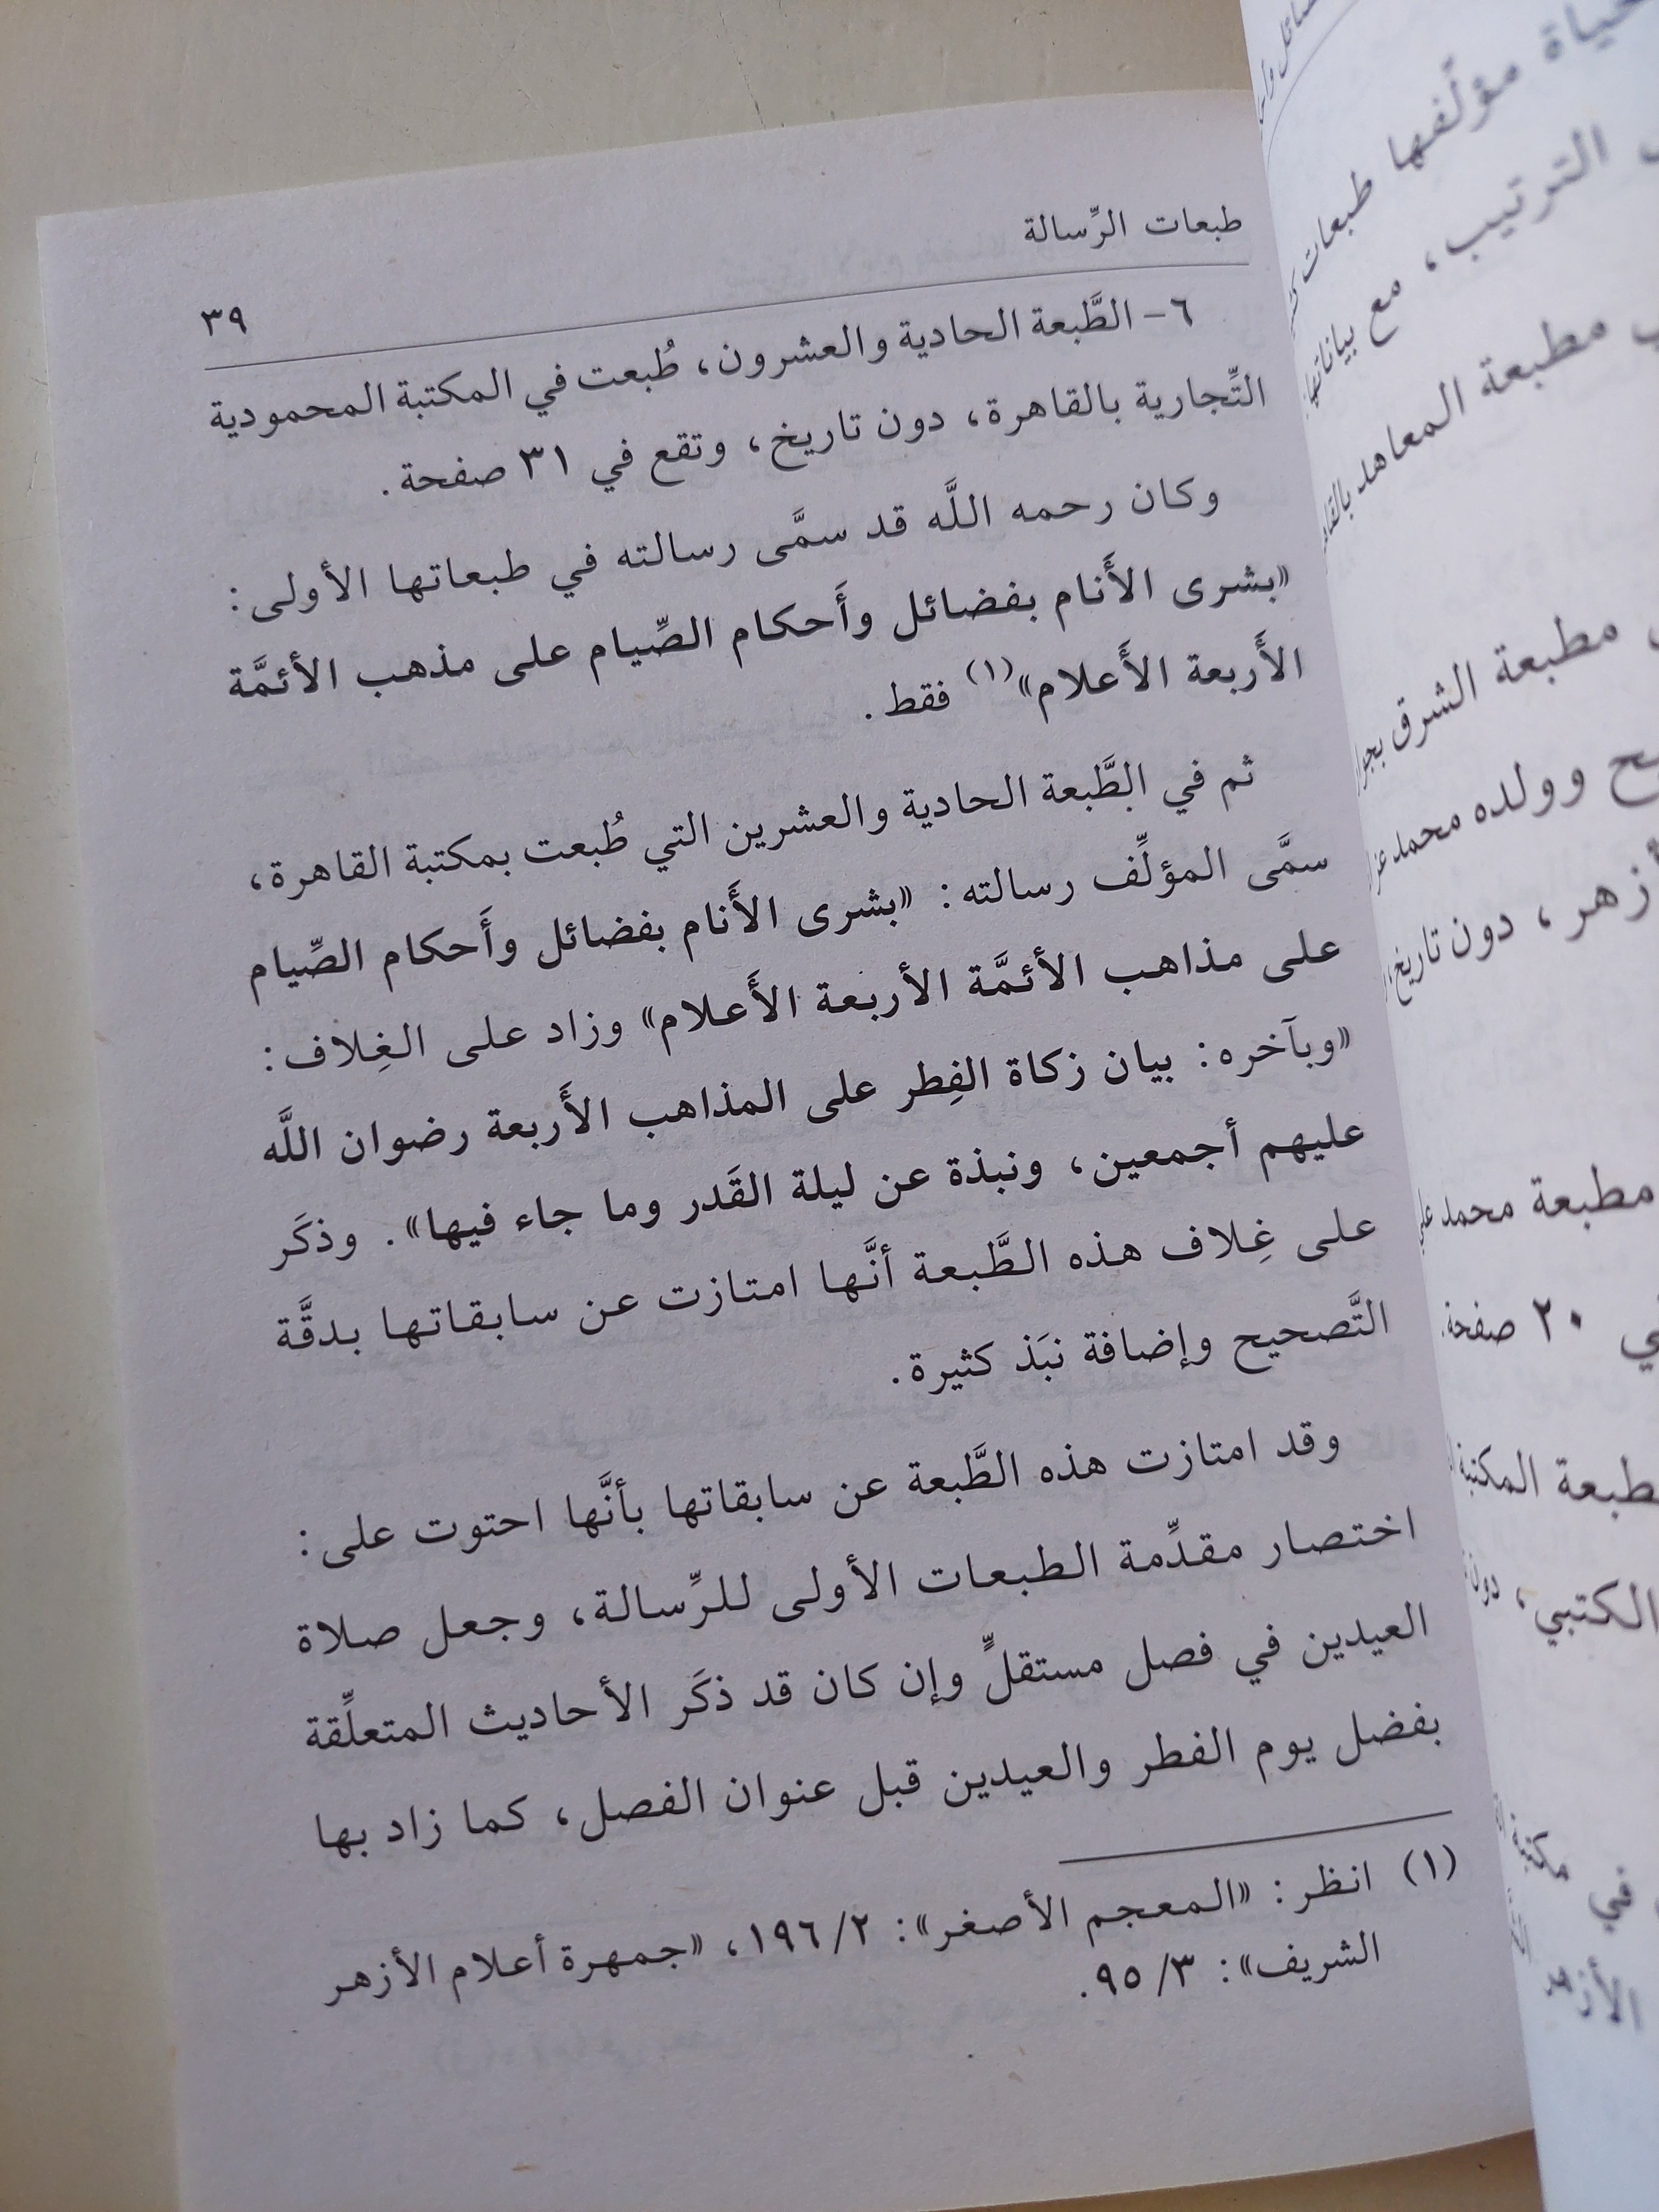 طبعات الرِّسالة
٣٩
٦- الطَّبعة الحادية والعشرون، طُبعت في المكتبة المحمودية
التِّجارية بالقاهرة، دون تاريخ، وتقع في ٣١ صفحة.
وكان رحمه اللَّه قد سمَّى رسالته في طبعاتها الأولى:
«بشرى الأَنام بفضائل وأَحكام الصِّيام على مذهب الأئمَّة
الأَربعة الأَعلام»(١) فقط.
ثم في الطَّبعة الحادية والعشرين التي طُبعت بمكتبة القاهرة،
سمَّى المؤلِّف رسالته: «بشرى الأَنام بفضائل وأَحكام الصِّيام
على مذاهب الأئمَّة الأربعة الأَعلام» وزاد على الغِلاف:
«وبآخره: بيان زكاة الفِطر على المذاهب الأَربعة رضوان اللَّه
عليهم أجمعين، ونبذة عن ليلة القَدر وما جاء فيها». وذكَر
على غِلاف هذه الطَّبعة أنَّها امتازت عن سابقاتها بدقَّة
التَّصحيح وإضافة نبَذ كثيرة.
وقد امتازت هذه الطَّبعة عن سابقاتها بأنَّها احتوت على:
اختصار مقدِّمة الطبعات الأولى للرِّسالة، وجعل صلاة
العيدين في فصل مستقلٍّ وإن كان قد ذكَر الأحاديث المتعلِّقة
بفضل يوم الفطر والعيدين قبل عنوان الفصل، كما زاد بها
(١) انظر: «المعجم الأصغر»: ١٩٦/٢، «جمهرة أعلام الأزهر
الشريف»: ٩٥/٣.
مؤلِّفها طبعات
الترتيب، مع بياناتها
مطبعة المعاهد
مطبعة الشرق
وولده محمد
دون تاريخ
مطبعة محمد
٢٠ صفحة.
المكتبة
الكتبي، دون
في مكتبة
الأزهر